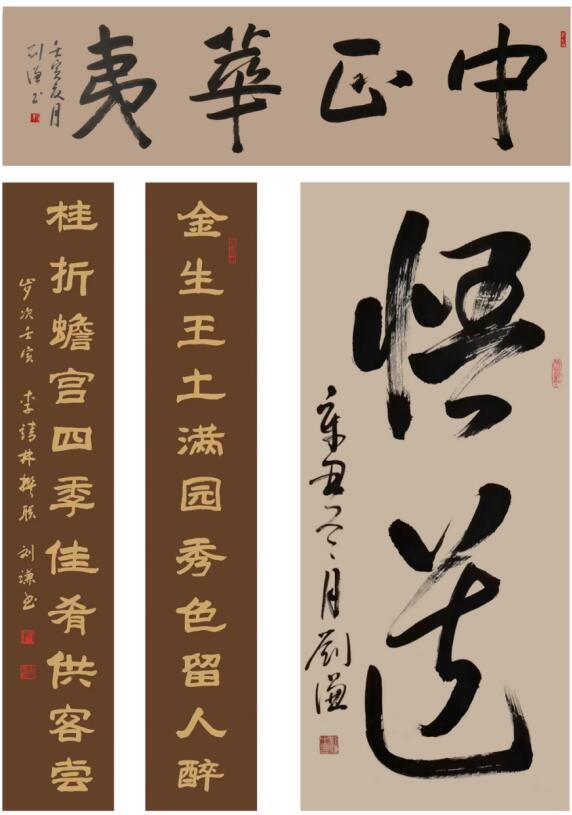 中正華夷
壬寅夏月
刘谦书
金生王土满园秀色留人醉
桂折蟾宫四季佳肴供客尝
岁次壬寅 李靖林撰联 刘谦书
悟道
辛丑冬月劉谦